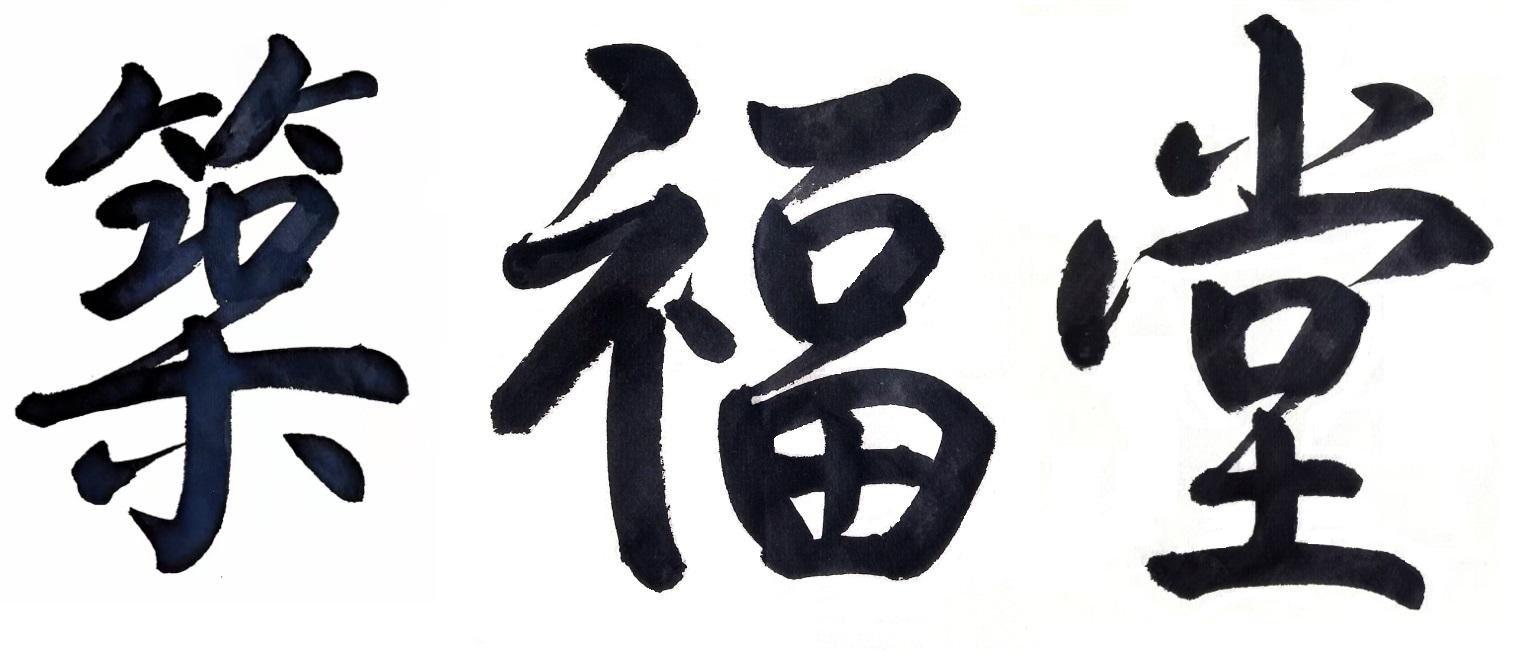 築福堂